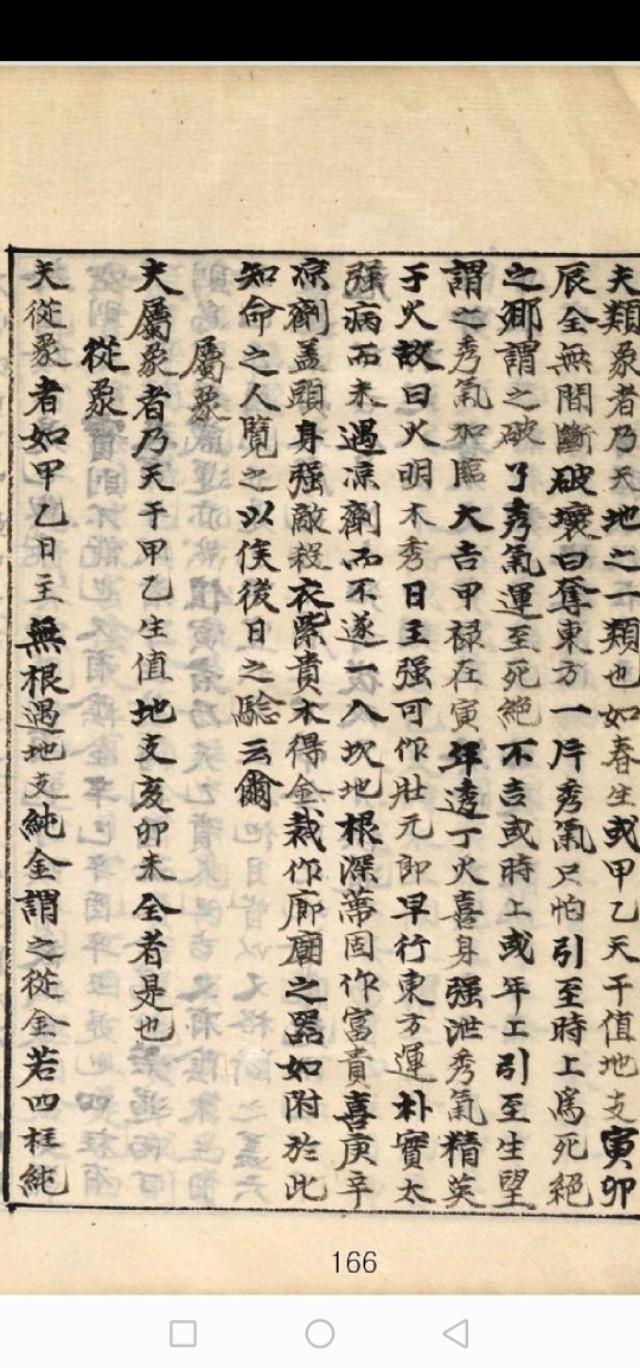 夫類象者乃天地之一類也如春生或甲乙天干值地支寅卯
辰全無間斷破壞曰奪東方一片秀氣只怕引至時上爲死絕
之鄉謂之破了秀氣運至死絕不吉或時上或年工引至生望
謂之秀氣加臨大吉甲禄在寅年透丁火喜身强泄秀氣精英
于火故曰火明木秀日主强可作壯元郎早行東方運朴實太
强病而未遇凉劑而不遂一入坎地根深蒂固作富貴喜庚辛
凉劑盖頭身强敵殺衣紫貴木得金裁作廊廟之器如附於此
知命之人覽之以俟後日之騐云爾
屬象
夫屬象者乃天干甲乙生值地支亥卯未全者是也
從象
夫從象者如甲乙日主無根遇地支純金謂之從金若四柱純
166